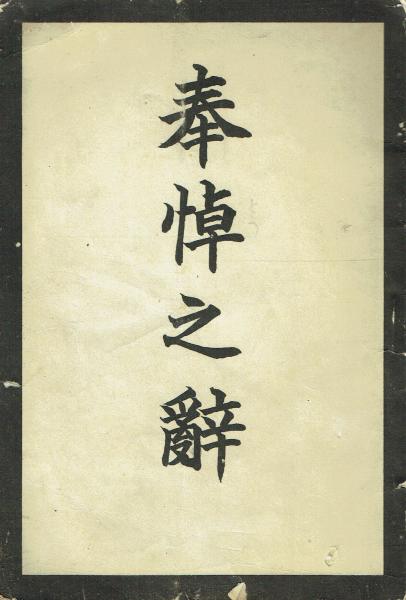 奉悼之辭